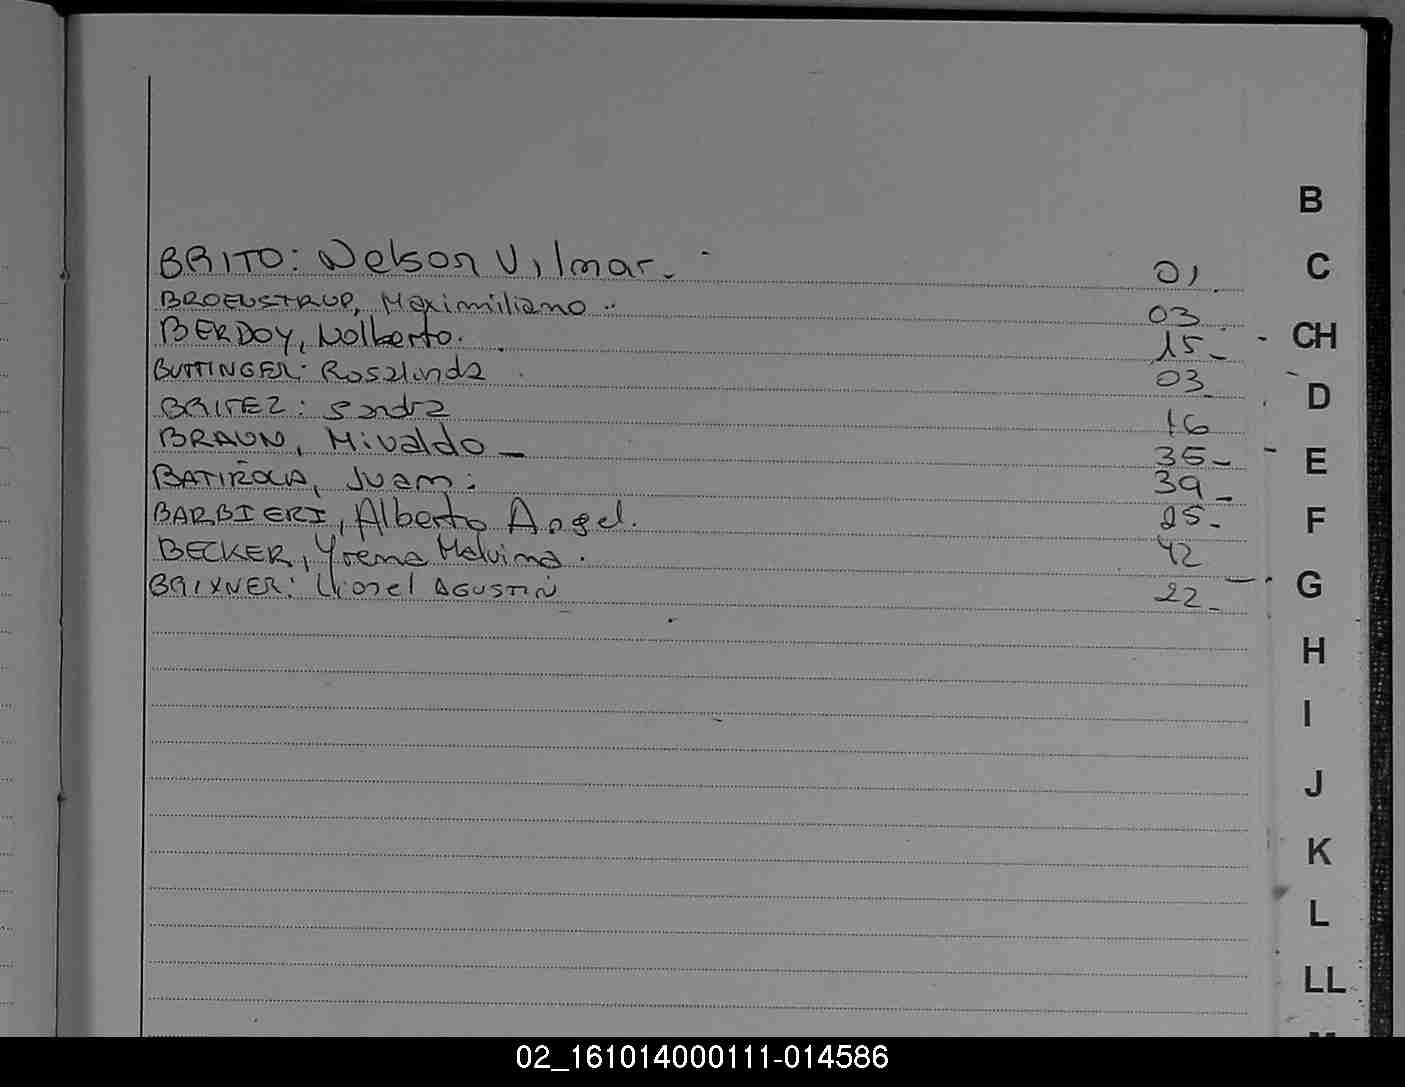 BRITO: Nelson Vilmar. 01
BROENSTRUP, Maximiliano 03
BERDOY, Nolberto. 15
BUTTINGER: Rosalinda 03
BRITEZ: Sandra 16
BRAUN, Mivaldo 35
Juam 39
BARBIERI, Alberto Angel. 25
BECKER, Yrema Malvina. 42
BRIXNER: Lionel AGUSTIN 22
B
C
CH
D
E
F
G
H
I
J
K
L
LL
02_161014000111-014586